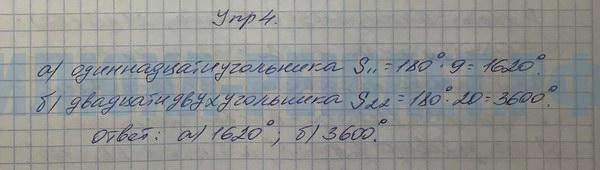 Упр 4.
а) одиннадцатиугольника S₁₁ = 180° · 9 = 1620°.
б) двадцатидвухугольника S₂₂ = 180° · 20 = 3600°.
ответ: а) 1620°; б) 3600°.